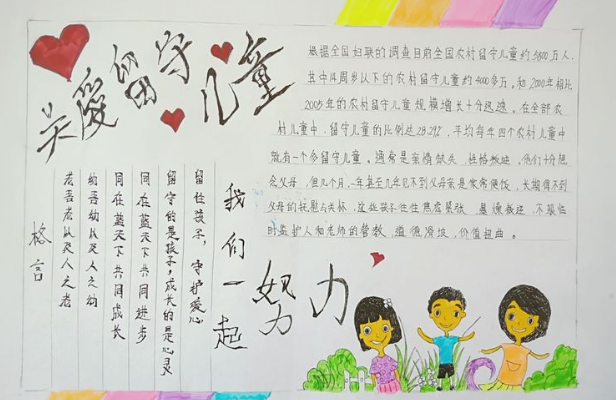 关爱留守儿童
根据全国妇联的调查目前全国农村留守儿童约5800万人,
其中14周岁以下的农村留守儿童约4000多万。和2000年相比
2005年的农村留守儿童规模增长十分迅速。在全部农
村儿童中,留守儿童的比例达28.29%,平均每年四个农村儿童中
就有一个多留守儿童。通常是亲情缺失,性格叛逆。他们十分想
念父母,但几个月、一年甚至几年见不到父母亲是常常便饭,长期得不到
父母的抚慰与关怀,这些孩子往往焦虑紧张,暴躁叛逆,不服临
时监护人和老师的管教,道德滑坡,价值扭曲。
我们一起
努力
留住孩子,守护爱心
留守的是孩子,成长的是心灵
同在蓝天下共同进步
同在蓝天下共同成长
幼吾幼以及人之幼
老吾老以及人之老
格言